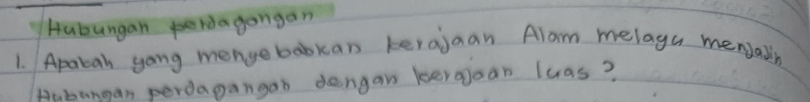 Hubungan perdagangan
1. Apakah yang menyebabkan kerajaan Alam melayu menjalin
Hubungan perdagangan dengan kerajaan luas?